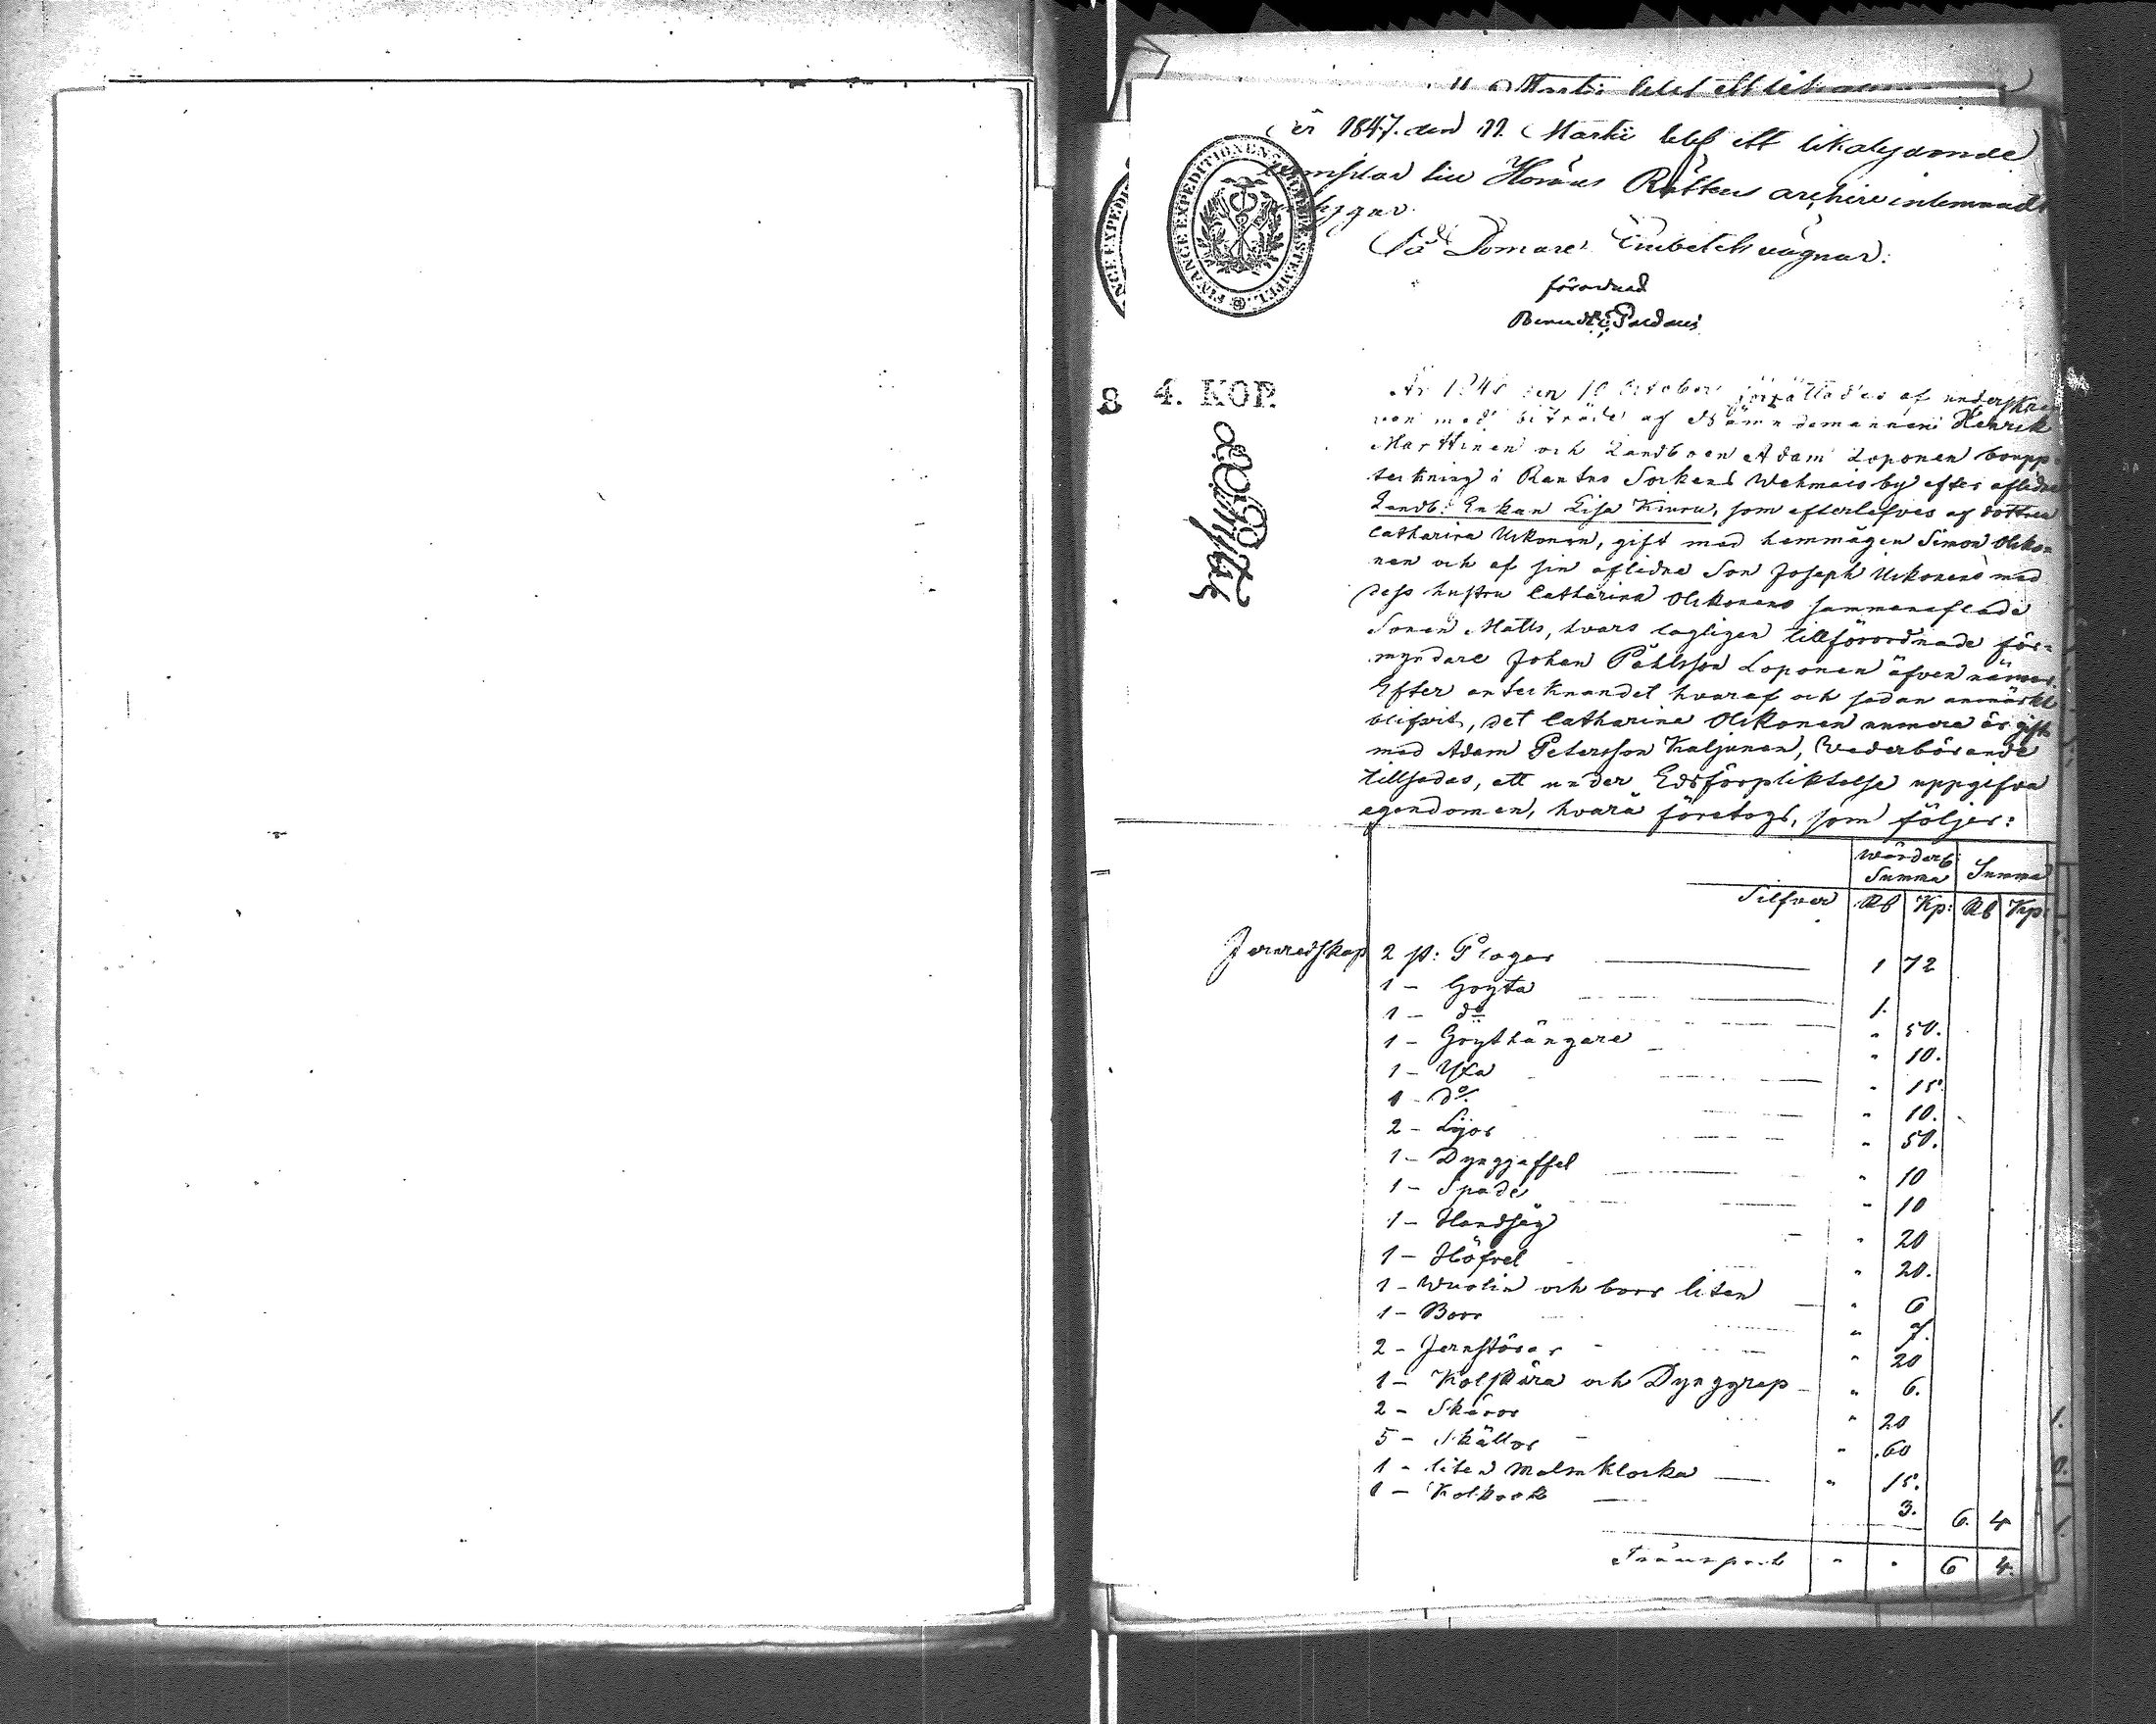 År 1847. den 11. Martii blef ett likalydande
exemplar till Härads Rättens archiv inlemnadt
betygar
På Domare Embetets vägnar:
förordnad
FINANCE EXPEDITIONENS CHARTÆ STEMPEL.
8 4. KOP.
År 184 den 10 October förrättades af underskre-
ven med biträde af Nämndemannen Henrik
Marttinen och Landboen Adam Loponen boupp-
teckning i Rautus Sockens Wehmais by efter aflidne
Landb: Enkan Lisa Kinnu, som efterlefves af dottren
Catharina Uskonen, gift med hemmågen Simon Olko-
nen och af sin aflidne Son Joseph Uskonens med
dess hustru Catharina Olikonens sammanaflade
Sonen Matts, hvars lagligen tillförordnade för-
myndare Johan Påhlsson Loponen äfven närvar.
Efter antecknandet hvaraf och sedan anmärkt
blifvit, det Catharina Olikonen numera är gift
med Adam Petersson Kaljunen, Wederbörande
tillsades, att under Edsförpliktelse uppgifva
egendomen, hvarå företogs, som följer:
Wärder: Summa Summa
Silfver Rb Kp: Rb Kp:
Jernredskap 2 st: Plogar 1 72
1 - Gryta 1.
1 - do " 50.
1 - Grythängare " 10.
1 - Yxa " 15.
1 - do. " 10.
2 - Lijor " 50.
1 - Dynggaffel " 10
1 - Spade " 10
1 - Handsåg " 20
1 - Höfvel " 20.
1 - Wuolin och borr liten " 6
1 - Borr " 7.
2 - Jernstörar " 20
1 - Kolskära och Dynggrep " 6.
2 - Skäror " 20
5 - Skällor " 60
1 - liten Malmklocka " 15.
1 - Kolkrok 3. 6. 4
Transport " " 6 4.